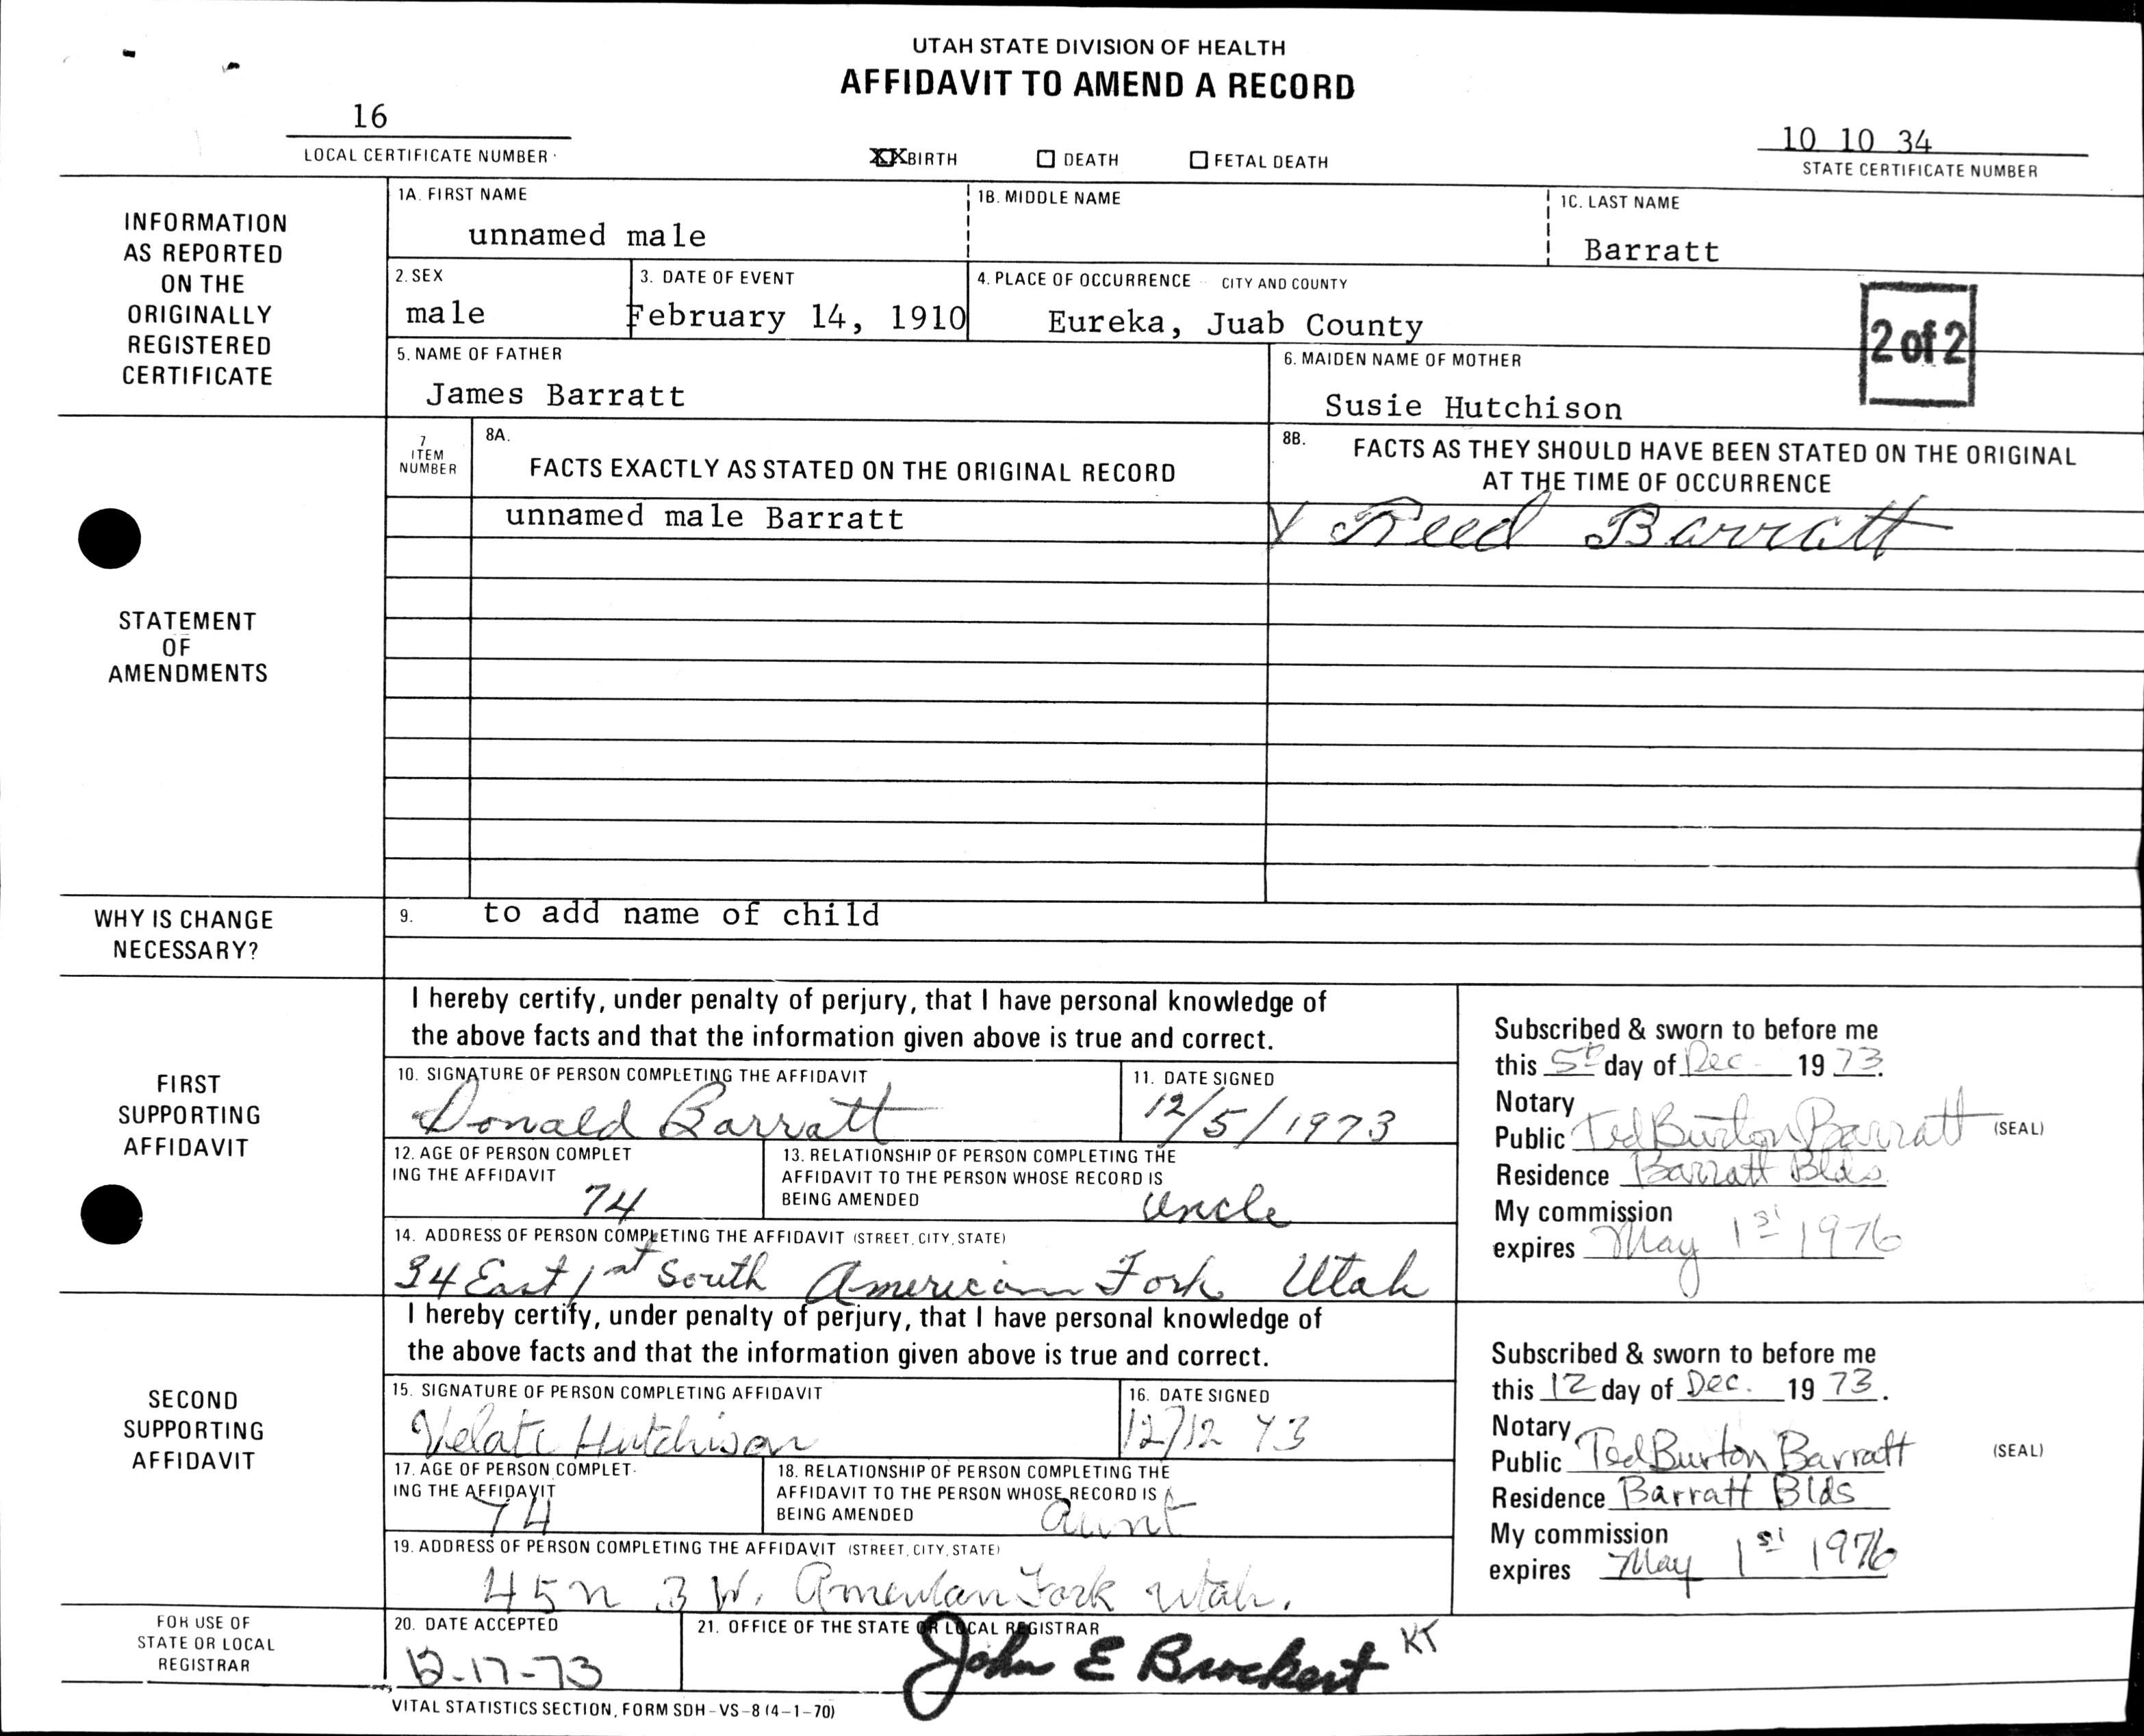 UTAH STATE DIVISION OF HEALTH
AFFIDAVIT TO AMEND A RECORD
16
LOCAL CERTIFICATE NUMBER
XX BIRTH ☐ DEATH ☐ FETAL DEATH
10 10 34
STATE CERTIFICATE NUMBER
INFORMATION
AS REPORTED
ON THE
ORIGINALLY
REGISTERED
CERTIFICATE
1A. FIRST NAME
unnamed male
1B. MIDDLE NAME
1C. LAST NAME
Barratt
2. SEX
male
3. DATE OF EVENT
February 14, 1910
4. PLACE OF OCCURRENCE CITY AND COUNTY
Eureka, Juab County
2 of 2
5. NAME OF FATHER
James Barratt
6. MAIDEN NAME OF MOTHER
Susie Hutchison
STATEMENT
OF
AMENDMENTS
7
ITEM
NUMBER
8A.
FACTS EXACTLY AS STATED ON THE ORIGINAL RECORD
8B. FACTS AS THEY SHOULD HAVE BEEN STATED ON THE ORIGINAL
AT THE TIME OF OCCURRENCE
unnamed male Barratt
X Reed Barratt
WHY IS CHANGE
NECESSARY?
9. to add name of child
FIRST
SUPPORTING
AFFIDAVIT
I hereby certify, under penalty of perjury, that I have personal knowledge of
the above facts and that the information given above is true and correct.
10. SIGNATURE OF PERSON COMPLETING THE AFFIDAVIT
Donald Barratt
11. DATE SIGNED
12/5/1973
12. AGE OF PERSON COMPLET
ING THE AFFIDAVIT
74
13. RELATIONSHIP OF PERSON COMPLETING THE
AFFIDAVIT TO THE PERSON WHOSE RECORD IS
BEING AMENDED
uncle
14. ADDRESS OF PERSON COMPLETING THE AFFIDAVIT (STREET, CITY, STATE)
34 East 1st South American Fork Utah
Subscribed & sworn to before me
this 5th day of Dec 19 73.
Notary
Public Ted Burton Barratt (SEAL)
Residence Barratt Blds.
My commission
expires May 1st 1976
SECOND
SUPPORTING
AFFIDAVIT
I hereby certify, under penalty of perjury, that I have personal knowledge of
the above facts and that the information given above is true and correct.
15. SIGNATURE OF PERSON COMPLETING AFFIDAVIT
Hutchison
16. DATE SIGNED
12/12 73
17. AGE OF PERSON COMPLET-
ING THE AFFIDAVIT
74
18. RELATIONSHIP OF PERSON COMPLETING THE
AFFIDAVIT TO THE PERSON WHOSE RECORD IS
BEING AMENDED
aunt
19. ADDRESS OF PERSON COMPLETING THE AFFIDAVIT (STREET, CITY, STATE)
45 N 3 W. American Fork Utah.
Subscribed & sworn to before me
this 12 day of Dec. 19 73.
Notary
Public Ted Burton Barratt (SEAL)
Residence Barratt Blds
My commission
expires May 1st 1976
FOR USE OF
STATE OR LOCAL
REGISTRAR
20. DATE ACCEPTED
12-17-73
21. OFFICE OF THE STATE OR LOCAL REGISTRAR
John E Brockert KT
VITAL STATISTICS SECTION, FORM SDH-VS-8 (4-1-70)